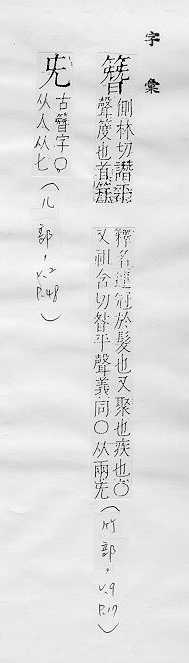 字彙
簪
側林切譖平
聲度也首筓
釋名連冠於髮也又聚也疾也○
又祖含切昝平聲義同○从兩兂
(竹部,v.9 P.17)
兂
古簪字○
从人从匕
(儿部,v.2 P.48)